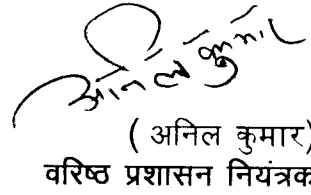 अनिल कुमार
( अनिल कुमार)
वरिष्ठ प्रशासन नियंत्रक